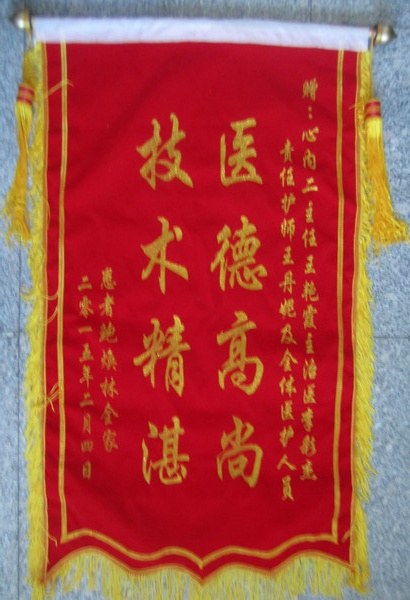 赠：心内二主任王艳霞主治医李彩杰
责任护师王丹妮及全体医护人员
医德高尚
技术精湛
患者鲍焕林全家
二零一五年二月四日